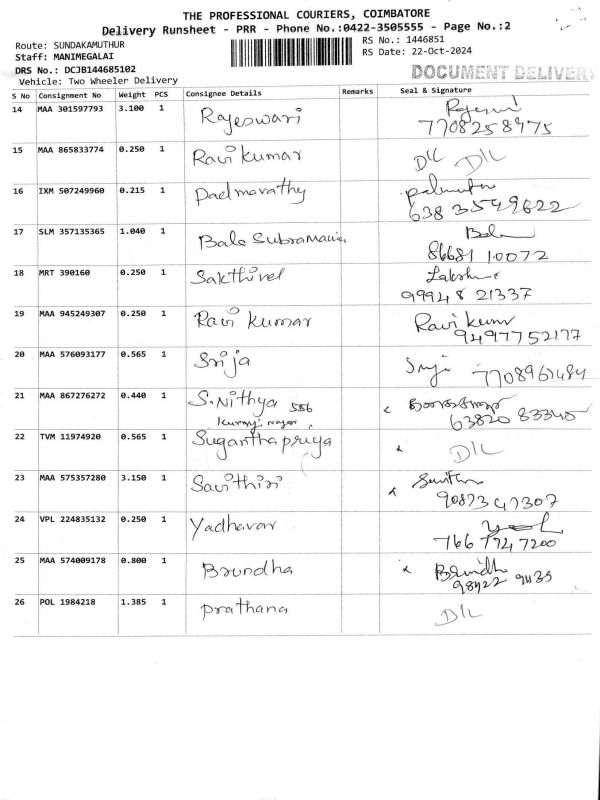 THE PROFESSIONAL COURIERS, COIMBATORE
Delivery Runsheet - PRR - Phone No.:0422-3505555 - Page No.:2
Route: SUNDAKAMUTHUR
RS No.: 1446851
Staff: MANIMEGALAI
RS Date: 22-Oct-2024
DRS No.: DCJB144685102
DOCUMENT DELIVERY
Vehicle: Two Wheeler Delivery
S No Consignment No Weight PCS Consignee Details Remarks Seal & Signature
14 MAA 301597793 3.100 1 Rajeswari
7708258975
15 MAA 865833774 0.250 1 Ravi Kumar D/L D/L
16 IXM 507249960 0.215 1 Padmavathy
638 3549622
17 SLM 357135365 1.040 1 Bala Subramani Bala
86681 10072
18 MRT 390160 0.250 1 Sakthivel Lakshmi
99948 21337
19 MAA 945249307 0.250 1 Ravi Kumar Ravi Kumar
9497752177
20 MAA 576093177 0.565 1 Srija Srija 7708961484
21 MAA 867276272 0.440 1 S.Nithya 556
63820 83340
22 TVM 11974920 0.565 1 Sugantha priya D/L
23 MAA 575357280 3.150 1 Savithiri
90873 47307
24 VPL 224835132 0.250 1 Yadhavan
766 7747200
25 MAA 574009178 0.800 1 Brundha Brindha
98422
26 POL 1984218 1.385 1 Prathana D/L